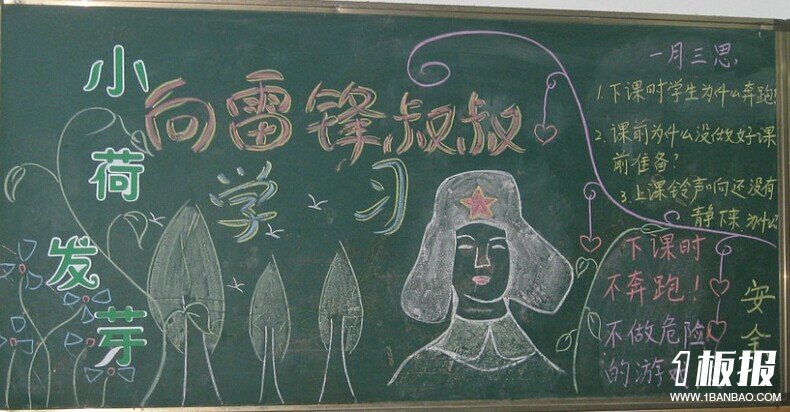 小荷发芽
向雷锋叔叔
学习
一月三思
1.下课时学生为什么奔跑?
2.课前为什么没做好课
前准备?
3.上课铃声响还没有
静下来 为什么
下课时
不奔跑!
不做危险
的游戏
安全
1板报
WWW.1BANBAO.COM